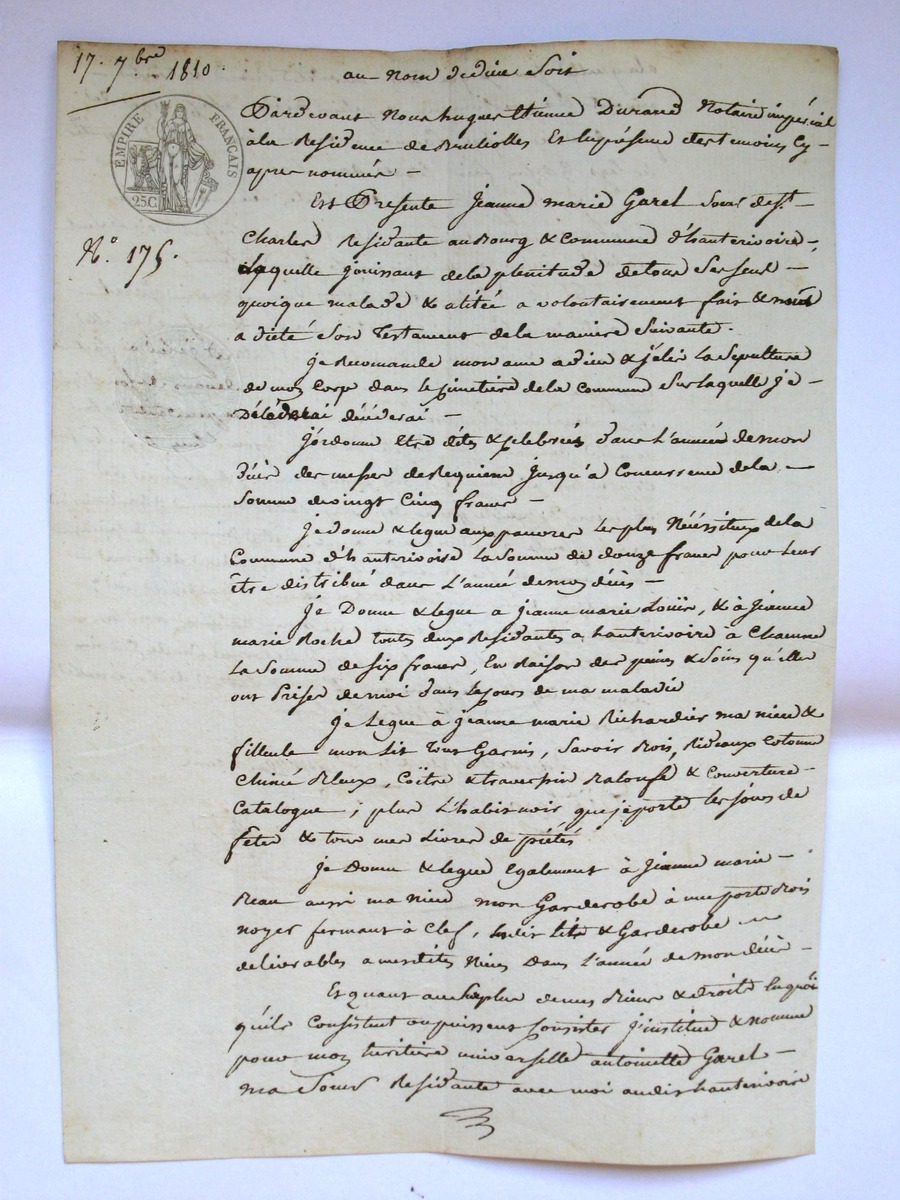 17. 7bre 1810.
au nom de dieu soit
EMPIRE FRANÇAIS
25C
Pardevant Nous hugues Etienne Durand Notaire impérial
à la Residence de Brulliolles Et la présence des temoins Cy-
apres nommés -
Est Présente Jeanne marie Garel soeur de st. -
N.o 175.
Charles Residante au Bourg & Commune d'hauterivoire -
laquelle jouissant de la plenitude de tous ses sens -
quoique malade & alitée a volontairement fait &
a dicté son Testament de la maniere suivante.
je Recomande mon ame a dieu & j'élis la sépulture
de mon Corps dans le Cimetiere de la Commune sur laquelle je -
décéderai -
j'ordonne être dites & celebrées dans L'année de mon
décès des messes de Requiem jusqu'à Concurrence de la -
somme de vingt Cinq francs -
je donne & legue aux pauvres les plus Nécessiteux de la
Commune d'hauterivoire La Somme de douze francs pour leur
être distribué dans L'année de mon décès -
je Donne & legue a jeanne marie Loüis, & à jeanne
marie Roche toutes deux Residantes a hauterivoire à Chacune
La Somme de six francs, En Raison des peines & soins qu'elles
ont Prises de moi dans le jours de ma maladie
je Legue à jeanne marie Richardier ma niece &
filleule mon Lit Tout Garnis, savoir Bois, Rideaux Cotonne
Chinée Bleux, Coitre & traverssin & Couverture -
Catalogne ; plus L'habit noir que je porte les jours de
fetes & tous mes Livres de piétés
je Donne & legue Egalement à jeanne marie -
Reau aussi ma niece mon Garderobe à une porte Bois
noyer fermant à Clef, Lesdits Lits & Garderobe
delivrables a mesdites Nieces Dans L'année de mon décès -
Et quant au surplus de mes Biens & droits En quoi
qu'ils Consistent ou puissent Consister j'institue & nomme
pour mon heritiere universelle antoinette Garel -
ma soeur Residante avec moi audit hauterivoire